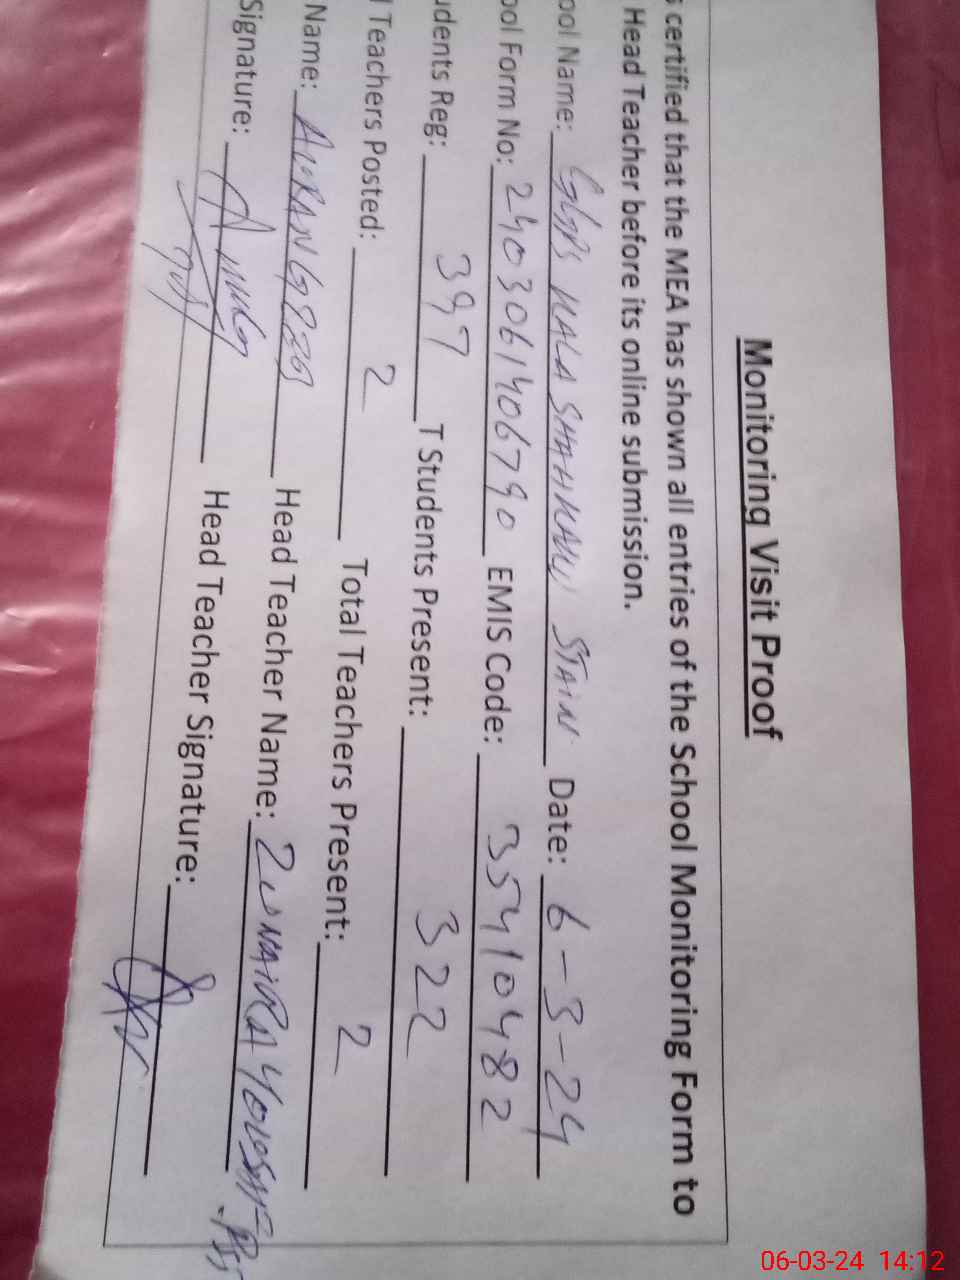 Monitoring Visit Proof
s certified that the MEA has shown all entries of the School Monitoring Form to
Head Teacher before its online submission.
ool Name: GGPS KALA SHAHKAW STAIN Date: 6-3-24
ool Form No: 2403061406790 EMIS Code: 35410482
udents Reg: 397 T Students Present: 322
l Teachers Posted: 2 Total Teachers Present: 2
Name: AURANGZEB Head Teacher Name: ZUNAIRA YOUSAF PST
Signature: Head Teacher Signature:
06-03-24 14:12